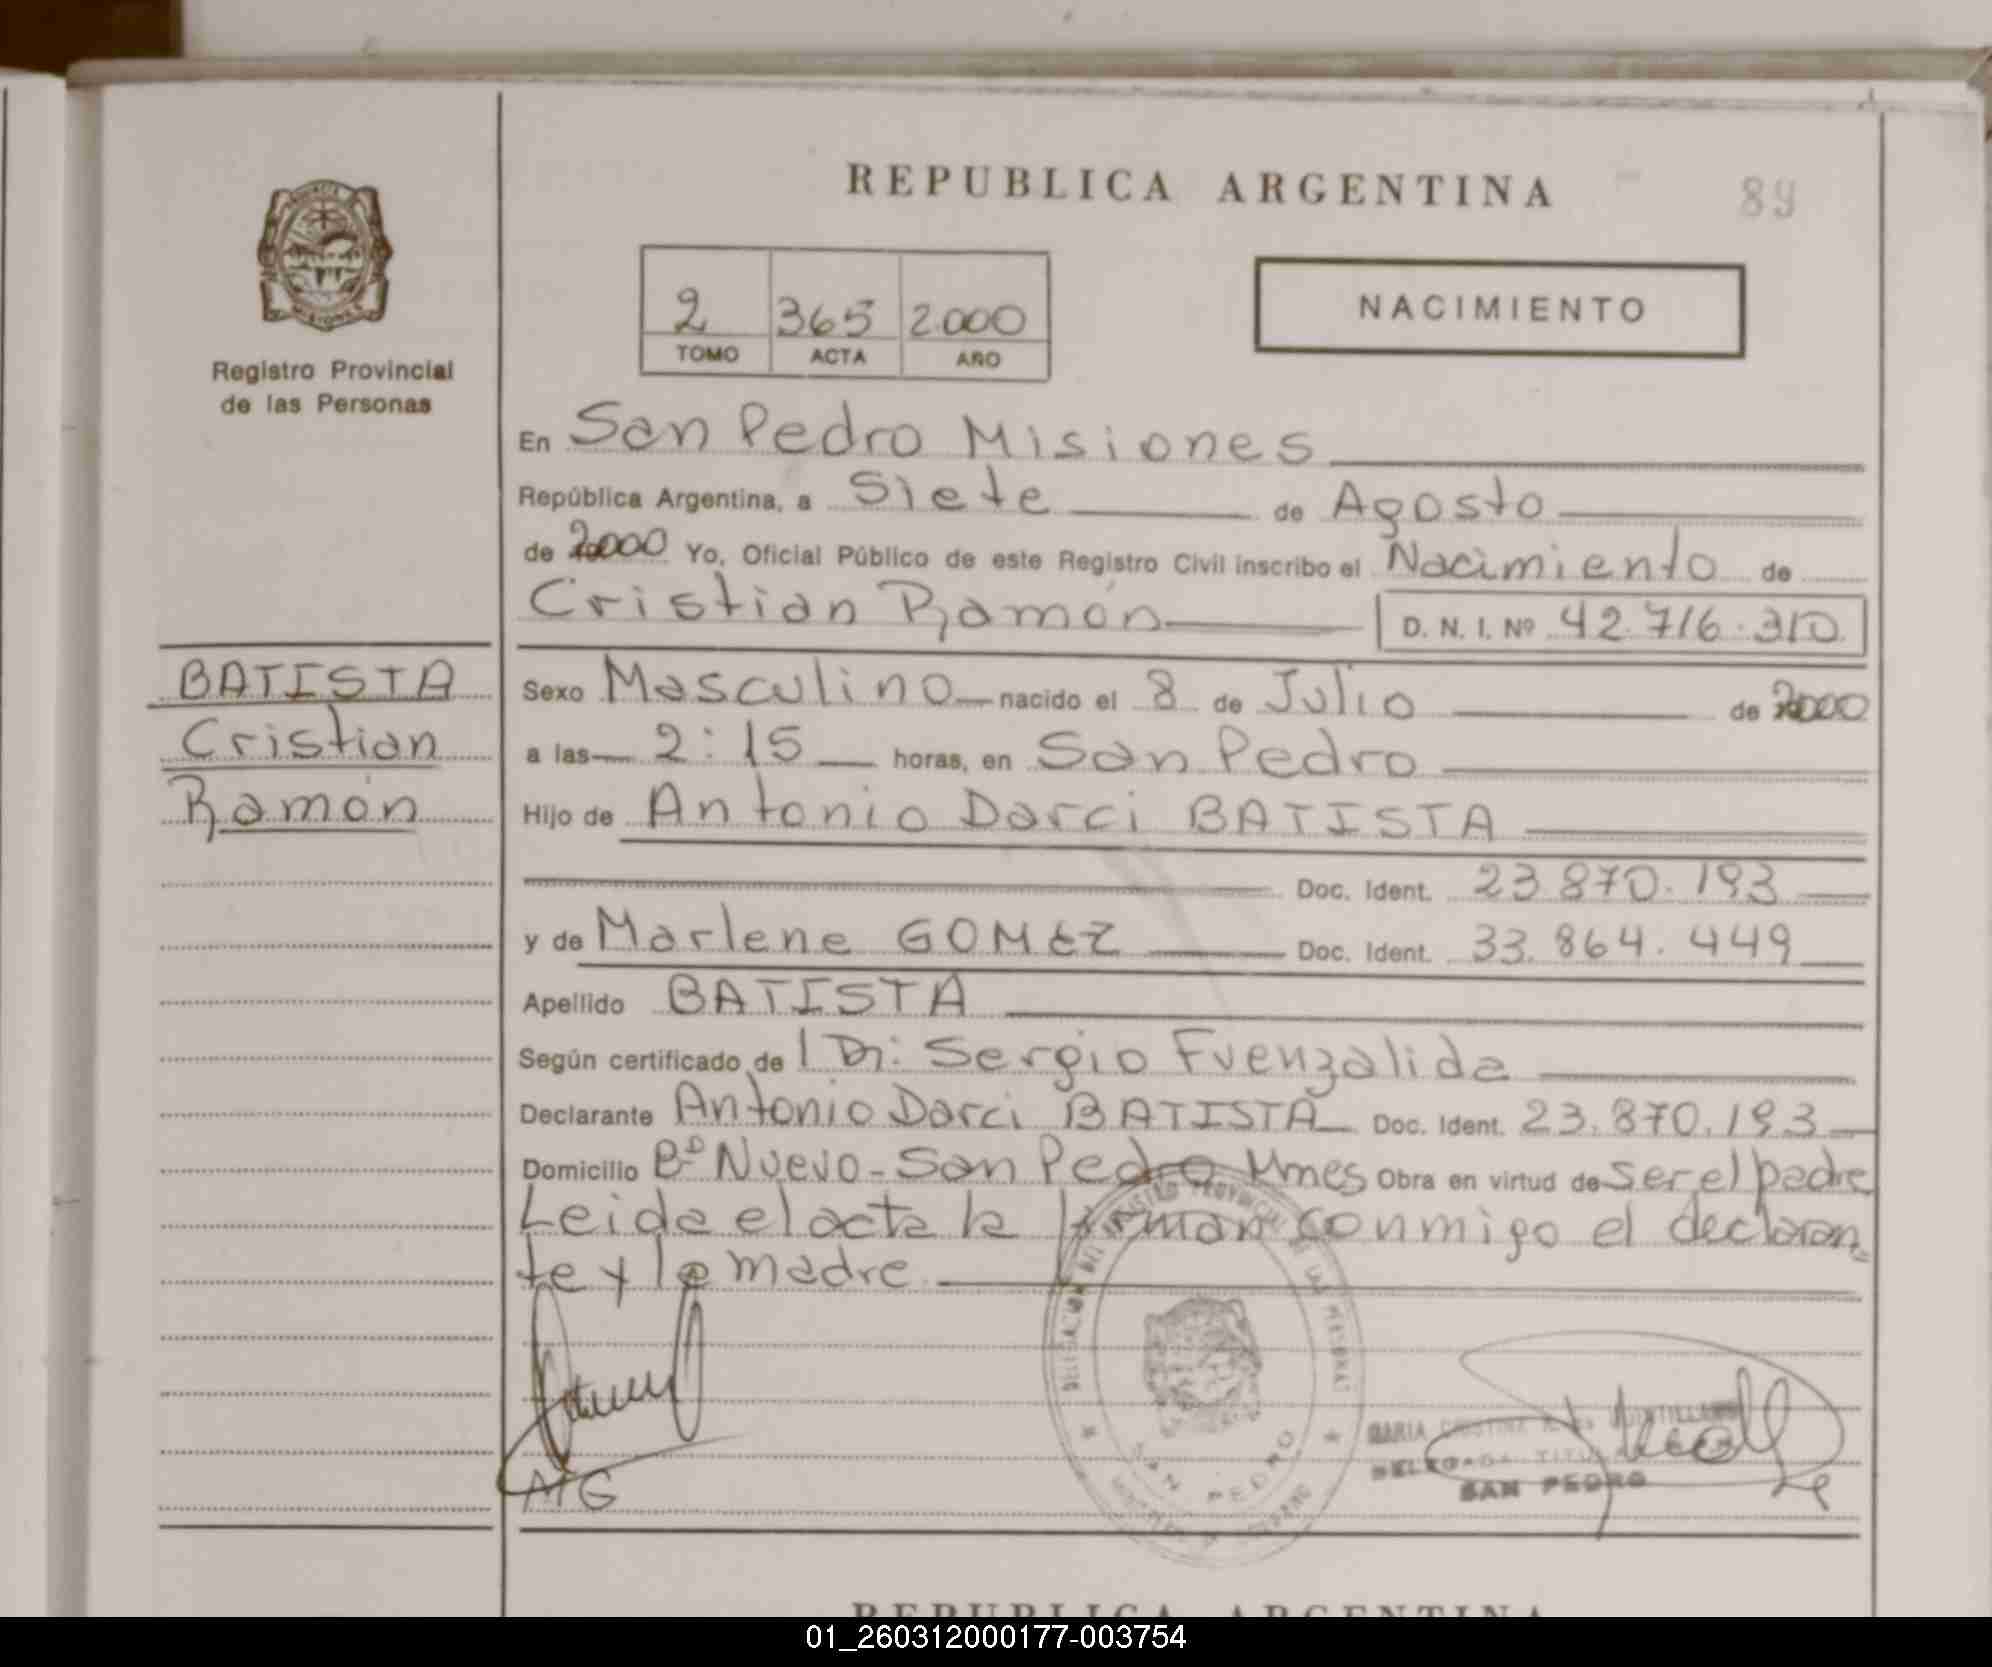 REPUBLICA ARGENTINA
89
Registro Provincial
de las Personas
2 365 2.000
TOMO ACTA AÑO
NACIMIENTO
En San Pedro Misiones
República Argentina, a Siete de Agosto
de 2000 Yo, Oficial Público de este Registro Civil inscribo el Nacimiento de
Cristian Ramón D. N. I. Nº 42.716.310
BATISTA
Cristian
Ramón
Sexo Masculino nacido el 8 de Julio de 2000
a las 2:15 horas, en San Pedro
Hijo de Antonio Darci BATISTA
Doc. Ident. 23.870.193
y de Marlene GOMEZ Doc. Ident. 33.864.449
Apellido BATISTA
Según certificado de Dr: Sergio Fuenzalida
Declarante Antonio Darci BATISTA Doc. Ident. 23.870.193
Domicilio Bº Nuevo-San Pedro Mnes Obra en virtud de ser el padre
Leida el acta la firman conmigo el declaran=
te y la madre
MG
DELEGACION DEL REGISTRO PROVINCIAL DE LAS PERSONAS
SAN PEDRO
MARIA CRISTINA
DELEGADA TITULAR
SAN PEDRO
REPUBLICA ARGENTINA
01_260312000177-003754